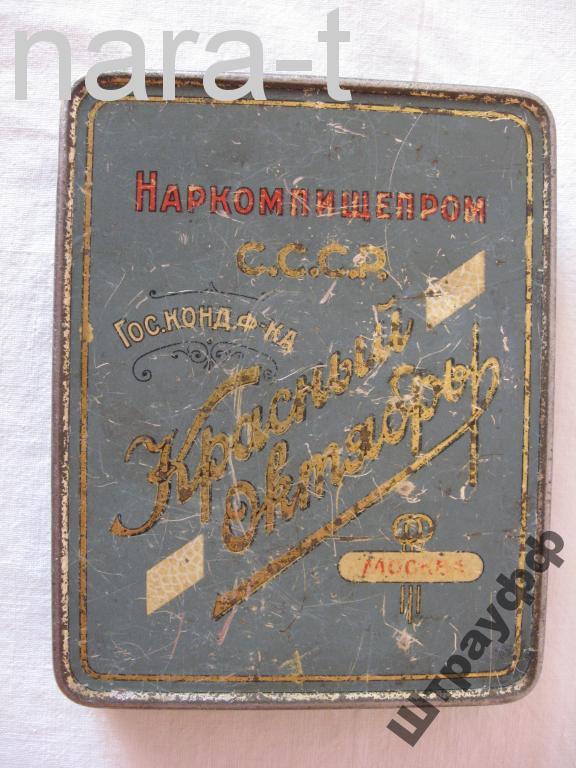 nara-t
НАРКОМПИЩЕПРОМ
С.С.С.Р.
ГОС.КОНД.Ф-КА
Красный
Октябрь
МОСКВА
штрауфф